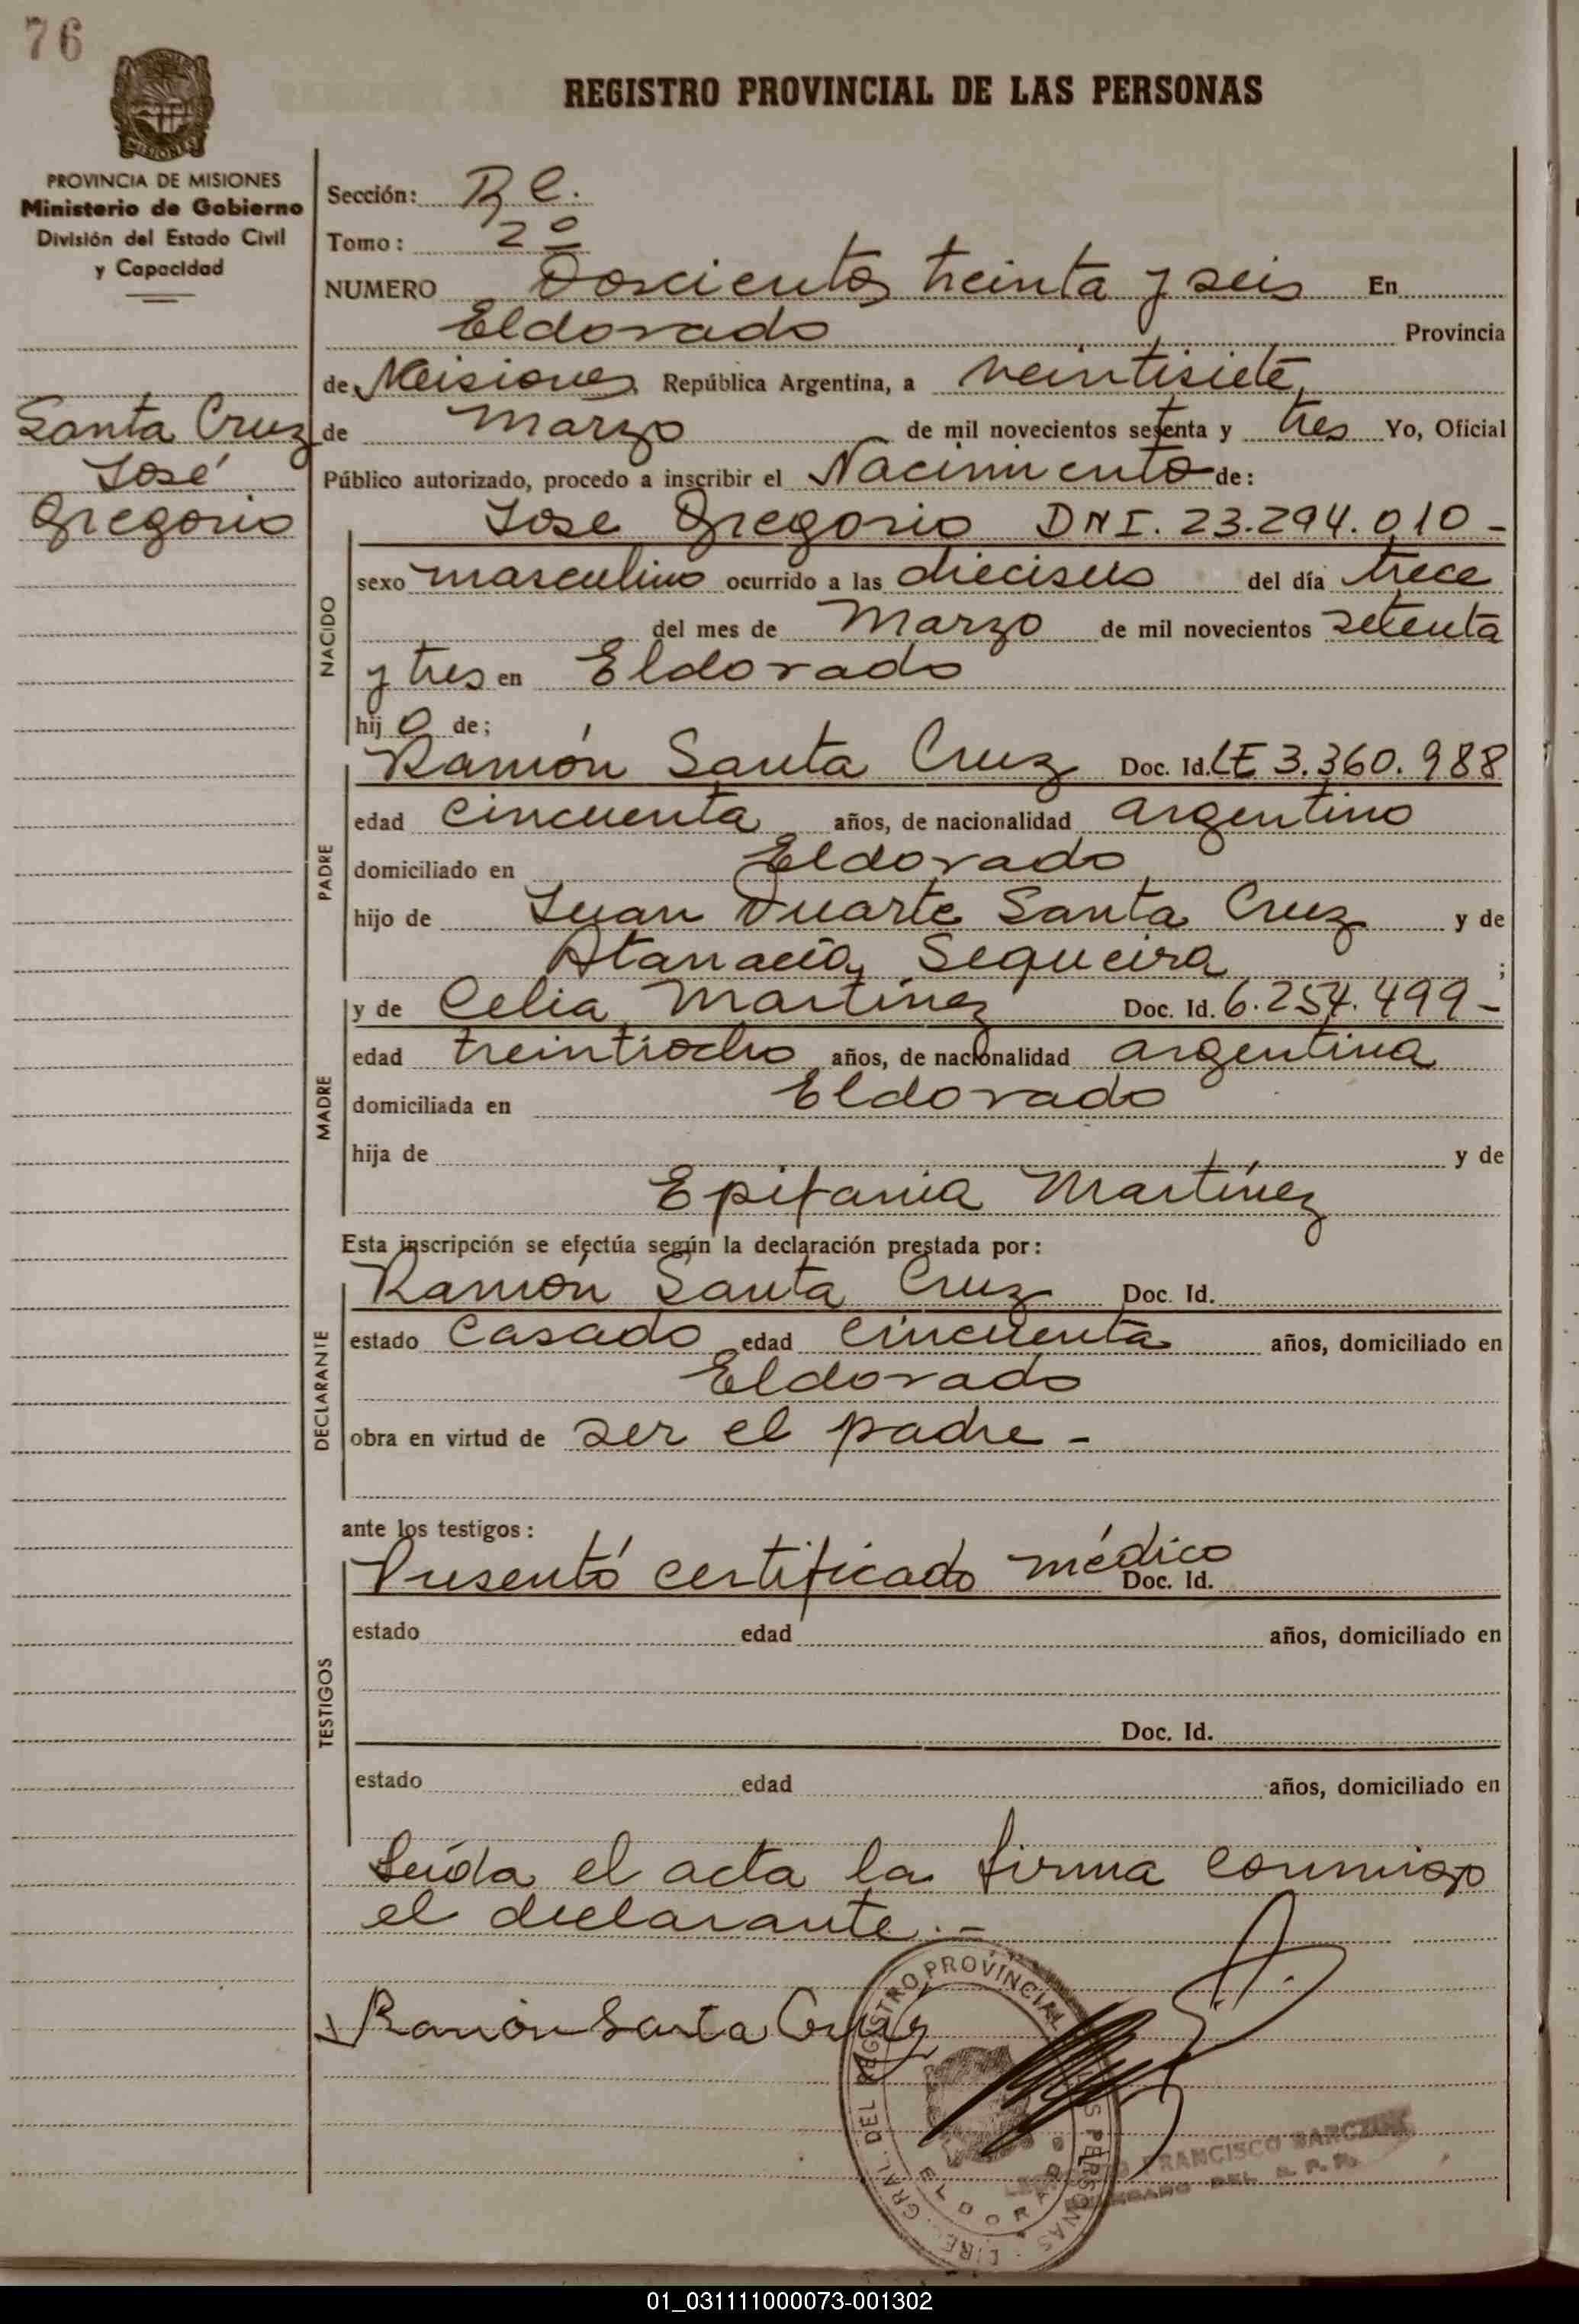 76
REGISTRO PROVINCIAL DE LAS PERSONAS
MISIONES
PROVINCIA DE MISIONES
Ministerio de Gobierno
División del Estado Civil
y Capacidad
Santa Cruz
José
Gregorio
Sección:
Tomo: 2º
NUMERO Doscientos treinta y seis En
Eldorado Provincia
de Misiones República Argentina, a veintisiete
de Marzo de mil novecientos setenta y tres Yo, Oficial
Público autorizado, procedo a inscribir el Nacimiento de:
NACIDO
Jose Gregorio DNI. 23.294.010 -
sexo masculino ocurrido a las dieciseis del día trece
del mes de Marzo de mil novecientos setenta
y tres en Eldorado
hijo de;
PADRE
Ramón Santa Cruz Doc. Id. LE 3.360.988
edad cincuenta años, de nacionalidad argentino
domiciliado en Eldorado
hijo de Juan Duarte Santa Cruz y de
Atanacia Sequeira ;
MADRE
y de Celia Martínez Doc. Id. 6.254.499 -
edad treintiocho años, de nacionalidad argentina
domiciliada en Eldorado
hija de y de
Epifania Martínez
Esta inscripción se efectúa según la declaración prestada por:
DECLARANTE
Ramón Santa Cruz Doc. Id.
estado casado edad cincuenta años, domiciliado en
Eldorado
obra en virtud de ser el padre -
ante los testigos:
TESTIGOS
Presentó certificado médico Doc. Id.
estado edad años, domiciliado en
Doc. Id.
estado edad años, domiciliado en
Leída el acta la firma conmigo
el declarante.-
Ramón Santa Cruz
DIREC. GRAL. DEL REGISTRO PROVINCIAL DE LAS PERSONAS
ELDORADO
FRANCISCO
DEL R. P. P.
01_031111000073-001302